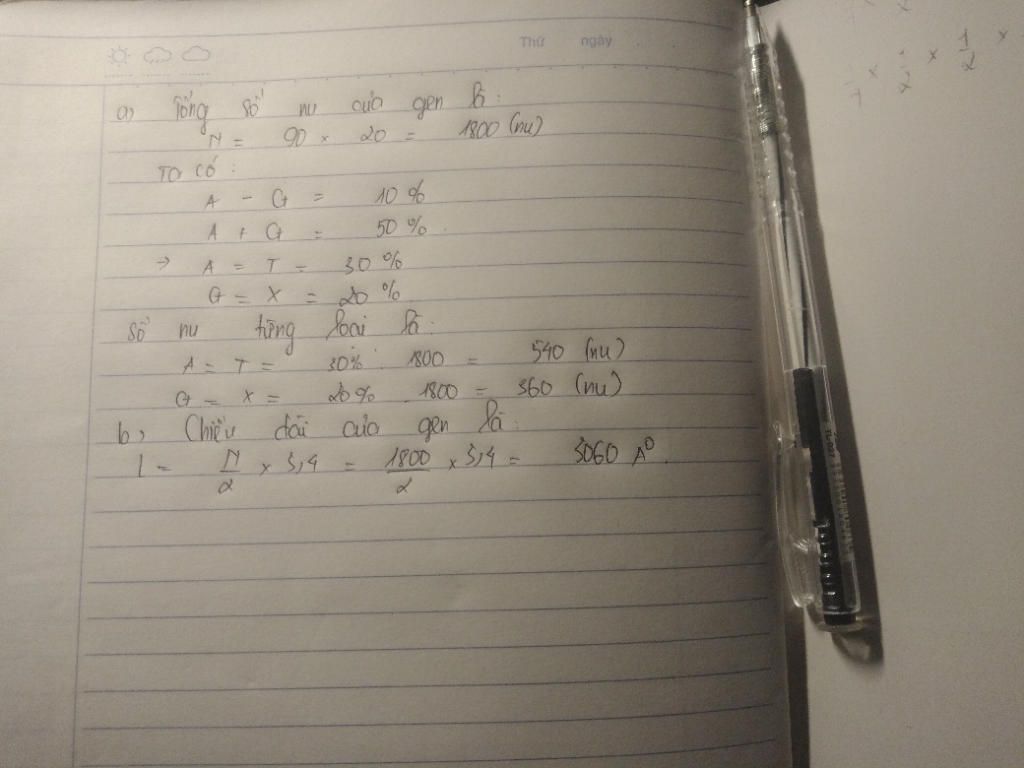 Thứ ngày
a, Tổng số nu của gen là:
N = 90 × 20 = 1800 (nu)
Ta có:
A - G = 10 %
A + G = 50 %
→ A = T = 30 %
G = X = 20 %
Số nu từng loại là:
A = T = 30% . 1800 = 540 (nu)
G = X = 20% . 1800 = 360 (nu)
b, Chiều dài của gen là:
l = N/2 × 3,4 = 1800/2 × 3,4 = 3060 A⁰
× 1/2 × 1/2 ×